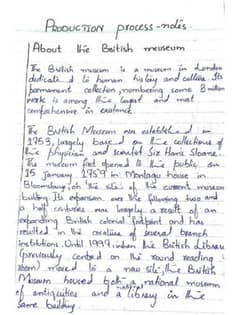 PRODUCTION process-notes
About the British museum
The British museum is a museum in London
dedicated to human history and culture. Its
permanent collection, numbering some 8 million
works is among the largest and most
comprehensive in existence
The British Museum was established in
1953, largely based on the collections of
the physician and scientist Sir Hans Sloane.
The museum first opened to the public on
15 January 1959 in Montagu house in
Bloomsbury, on the site of the current museum
building. Its expansion over the following two and
a half centuries was largely a result of an
expanding British colonial footprint and has
resulted in the creation of several branch
institutions. Until 1997 when the British Library
(previously centred on the round reading
room) moved to a new site, the British
Museum housed both a national museum
of antiquities and a national library in the
same building.